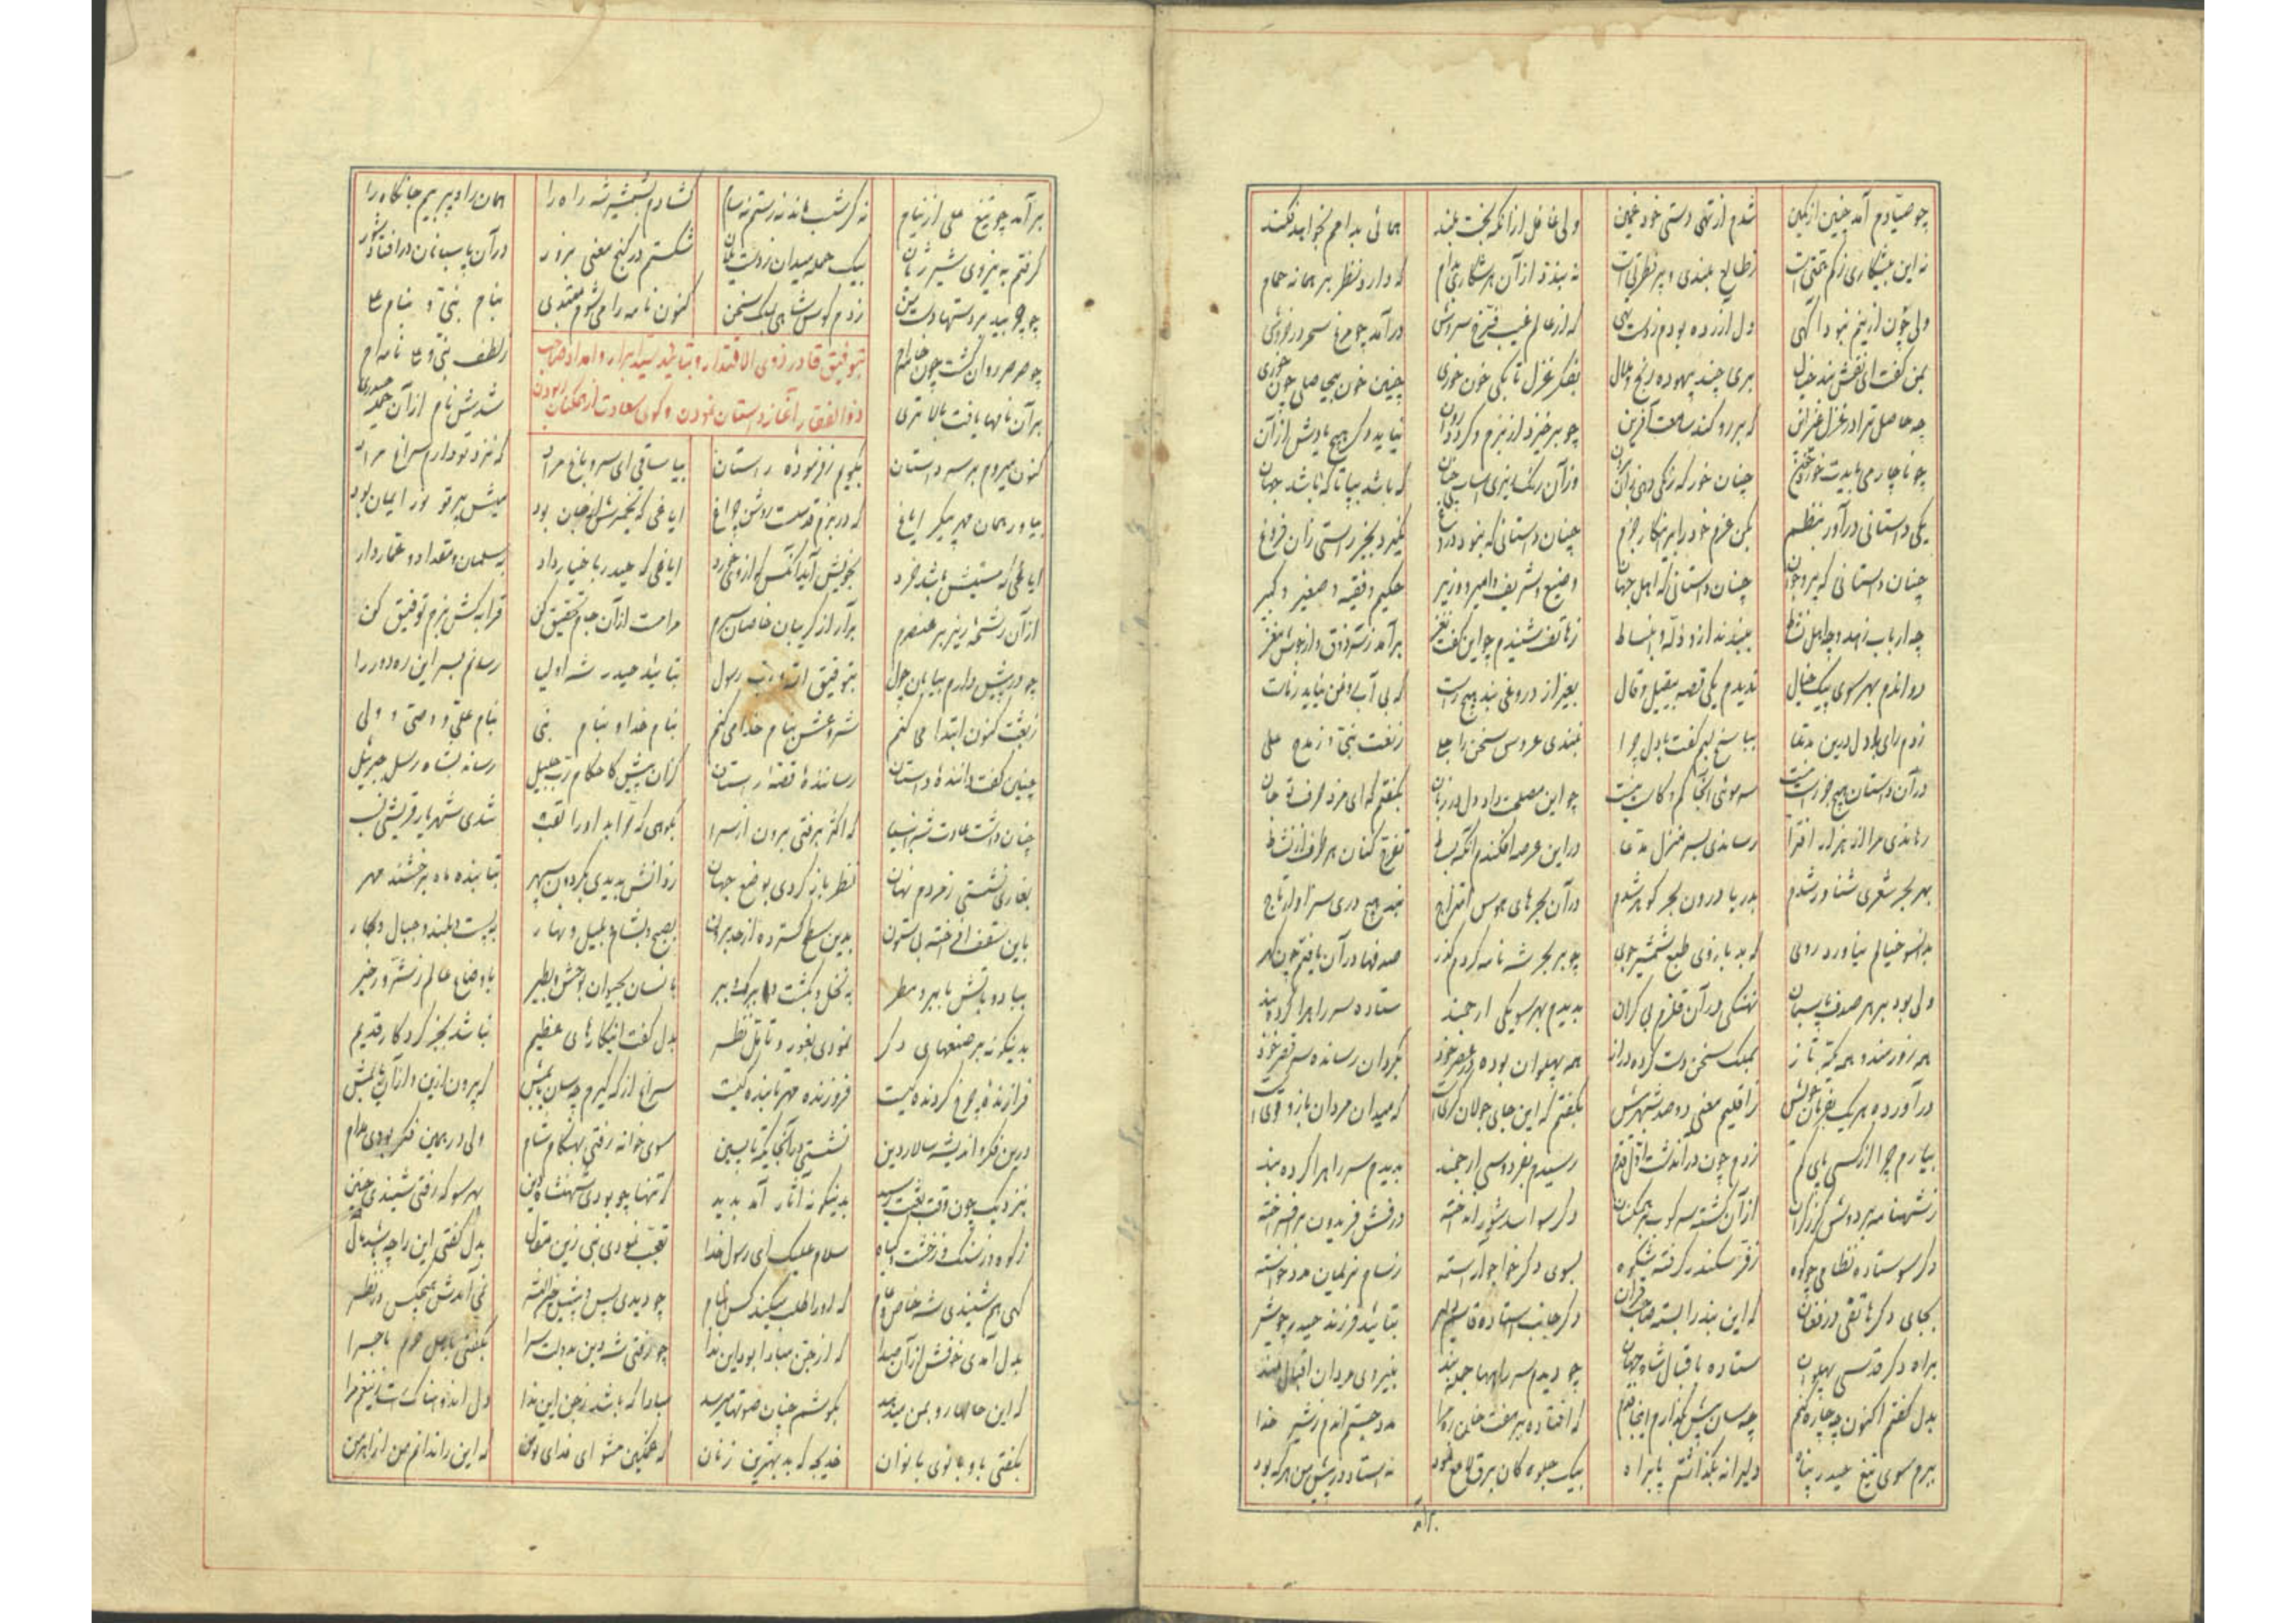 چو صیادم آمد چنین از کمین شدم از تهی دستی خود غمین ولی غافل از آنکه بخت بلند همائی بدامم بخواهد فکند
نه این بیشکاری ز کم همتی است ز طالع بلندی و پر فطرتی است نه بیند از آن هر شکاری بدام که دارد نظر بر همانه حمام
ولی چون ازینم نبود آگهی دل آزرده بودم ز دست تهی که از عالم غیب فرخ سروش درآمد چو مرغ سحر در خروش
بمن گفت ای نقش بند خیال بری چند بیهوده رنج و ملال بفکر غزل تا بکی خون خوری چنین خون بیحاصلی چون خوری
چه حاصل ترا در غزل غیر ازین که بر رو کند سامعت آفرین چو برخیزد از بزم و گردد روان نیاید دگر هیچ یادش از آن
چو ناچار می بایدت خورد خون چنان خور که رنگی دهی زان برون وزان رنگ ریزی اساسی چنان که باشد بپا تا که باشد جهان
یکی داستانی درآور بنظم بکن عزم خود را برینکار جزم چنان داستانی که نبود دروغ نگیرد بجز راستی زان فروغ
چنان داستانی که پیر و جوان چنان داستانی که اهل جهان وضیع و شریف و امیر و وزیر حکیم و فقیه و صغیر و کبیر
چه ارباب زهد و چه اهل نشاط ببینند ازو ذله و انبساط ز هاتف شنیدم چو این گفت نغز برآمد ز سر ذوق و از جوش مغز
دواندم بهر سوی پیک خیال ندیدم یکی قصه بیقیل و قال بغیر از دروغی نبد هیچ راست که بی آب و فن نیاید ز ناست
زدم رای با دل درین مدعا بپاسخ لبم گفت با دل چرا نبندی عروس سخن را حلی ز نعت نبی و ز مدح علی
در آن داستان هیچ جز راست نیست سر موئی آنجا کم و کاست نیست چو این مصلحت داد دل در زمان بگفتم که ای مزد حرف تو جان
رهاندی مرا از هزار افترا رساندی بسر منزل مدعا در این عرصه افکندم آنگه بساط تفرج کنان هر طرف از نشاط
بهر بحر شعری شناور شدم بدریا درون بحر گوهر شدم در آن بحرهای هوس امتزاج نبد هیچ دری سزاوار تاج
بدانسو خیالم نیاورد روی که بد بازوی طبع شمشیر جوی چو بر بحر شه نامه کردم گذر صدفها در آن یافتم چون گهر
ولی بود بر هر صدف پاسبان نهنگی در آن قلزم بی کران بدیدم بهر سو یکی ارجمند ستاده سر راهرا کرده بند
همه زورمند و همه ترک تاز بملک سخن دست کرده دراز همه پهلوان بوده در عصر خود بگردان رسانده سر قصر خود
درآورده هر یک بفرمان خویش ز اقلیم معنی دو صد شهر بیش بگفتم که این جای جولانگری است که میدان مردان بازو قوی است
بیارم چرا از کسی پای کم زدم چون در اندیشت اول قدم رسیدم بفردوسی ارجمند بدیدم سر راهرا کرده بند
ز شهنامه بر دوش گرز گران از آن گشته سرکوب بر همگنان دگر سو اسد شور انداخته درفش فریدون برافراخته
دگر سو ستاده نظامی چو کوه ز فر سکندر گرفته شکوه بسوی دگر خواجو آراسته ز سام نریمان مدد خواسته
بجای دگر هاتفی در فغان که این بند را بسته صاحب قران دگر جانب استاده قاسم دلیر بتائید فرزند حیدر چو شیر
براه دگر قدسی پهلوان ستاده باقبال شاه جهان چو دیدم سر راهها جمله بند بنیروی مردان اقبال مند
بدل گفتم اکنون چه چاره کنم چه سان پیش بگذارم اینجا قدم که افتاده بر هفت خان ره مرا مدد جستم اندم ز شیر خدا
ببرم سوی تیغ حیدر پناه دلیرانه بگذاشتم پا براه بیک جلوه کان برق لامع نمود نه استاد در پیش من هر که بود
برآمد
برآمد چو تیغ علی از نیام نه گرشسب ماند نه رستم نه سام گشادم بشمشیر شه راه را همان راه پر بیم جانکاه را
گرفتم به نیروی شیر ژیان بیک حمله میدان ز دست یلان شکستم در گنج معنی بزور در آن پاسبانان در افتاد شور
چو چربید بر دستها دست من زدم کوس شاهی بملک سخن کنون نامه را می شوم مبتدی بنام نبی و بنام علی
چو صرصر روان گشت چون خامه ام ز لطف نبی و علی نامه ام
بتوفیق قادر ذوی الاقتدار و بتائید سید ابرار و امداد صاحب
ذوالفقار آغاز داستان نمودن و گوی سعادت از همگنان ربودن
بر آن نامها یافت بالا تری شدش نام از آن حمله حیدری
کنون میروم بر سر داستان بگویم ز فرموده راستان بیا ساقی ای سرو باغ مراد که نزد تو دارم سراغ مراد
بیاور همان مهر پیکر ایاغ که در بزم قدست روشن چراغ ایاغی که خمیرش از جان بود میش پرتو نور ایمان بود
ایاغی که مستیش باشد خرد بخویش آید آنکس کز و می خورد ایاغی که حیدر باخیار داد به سلمان و مقداد و عمار داد
از آن رشحه ریز بر عنصرم برآر از گریبان خاصان سرم مرا مست از آن جام تحقیق کن قرابه کش بزم توفیق کن
چو در پیش دارم بیابان هول بتوفیق الله و رب رسول بتائید حیدر شه اولی رسانم بسر این ره دور را
ز بعثت کنون ابتدا می کنم شروعش بنام خدا می کنم بنام خدا و بنام نبی بنام علی و وصی و ولی
چنین گفت داننده داستان رساننده قصه راستان کزان پیش کاحکام رب جلیل رساند بشاه رسل جبرئیل
چنان داشت عادت شه انبیا که اکثر برفتی برون از سرا بکوهی که حرا بد او را لقب شدی شهریار قریشی نسب
بغاری نشستی ز مردم نهان نظر باز کردی بوضع جهان ز دانش بدیدی بگردون سپهر بتابنده ماه برخشنده مهر
باین سقف افراخته بی ستون بدین سطح گسترده از حد برون بصبح و بشام و بلیل و نهار به پست و بلند و جبال و بحار
بباد و بآتش بابر و مطر به نخل و بکشت و ببرگ و ببر بانسان بحیوان بوحش و بطیر باوضاع عالم ز شر و ز خیر
بدینگونه بر صنعهای دگر نمودی بغور و تامل نظر بدل گفت اینکارهای عظیم نباشد بجز کردگار قدیم
فرازنده چرخ گردنده کیست فروزنده مهر تابنده کیست سراغ از که گیرم چه سان یابمش که بیرون ازین و از آن یابمش
درین فکر و اندیشه سالار دین نشستی در آنجایگه تا پسین سوی خانه رفتی بهنگام شام ولی در همین فکر بودی مدام
بنزدیک چون وقت بعثت رسید بدینگونه آثار آمد پدید که تنها چو بودی شهنشاه دین بهر سو که رفتی شنیدی چنین
ز کوه و ز سنگ و ز خشت و گیاه سلام علیک ای رسول خدا تعجب نمودی نبی زین مقال بدل گفتی این را چه باشد مآل
گهی هم شنیدی شه خاص و عام که او را طلب میکند کس بنام چو دیدی پس و پیش خیر البشر نمی آمدش هیچکس در نظر
بدل آمدی خوفش از آن صدا که از جن مبادا بود این ندا چو رفتی شه دین بدولت سرا بگفتی باهل حرم ماجرا
که این حالها رو بمن میدهد بگوشم چنان صوتها میرسد مبادا که باشد ز جن این ندا دل اندوهناک است زینغم مرا
بگفتی باو بانوی بانوان خدیجه که بد بهترین زنان که غمگین مشو ای فدای تو من که این را ندانم من از اهرمن